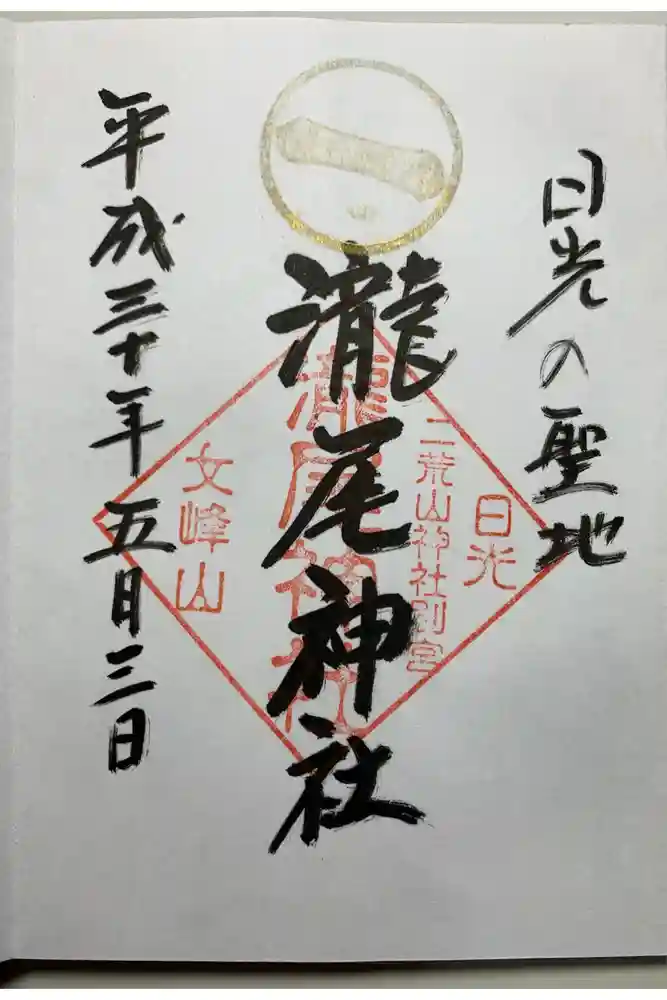 日光の聖地
日光
二荒山神社別宮
瀧尾神社
瀧尾神社
文峰山
平成三十年五月三日
一